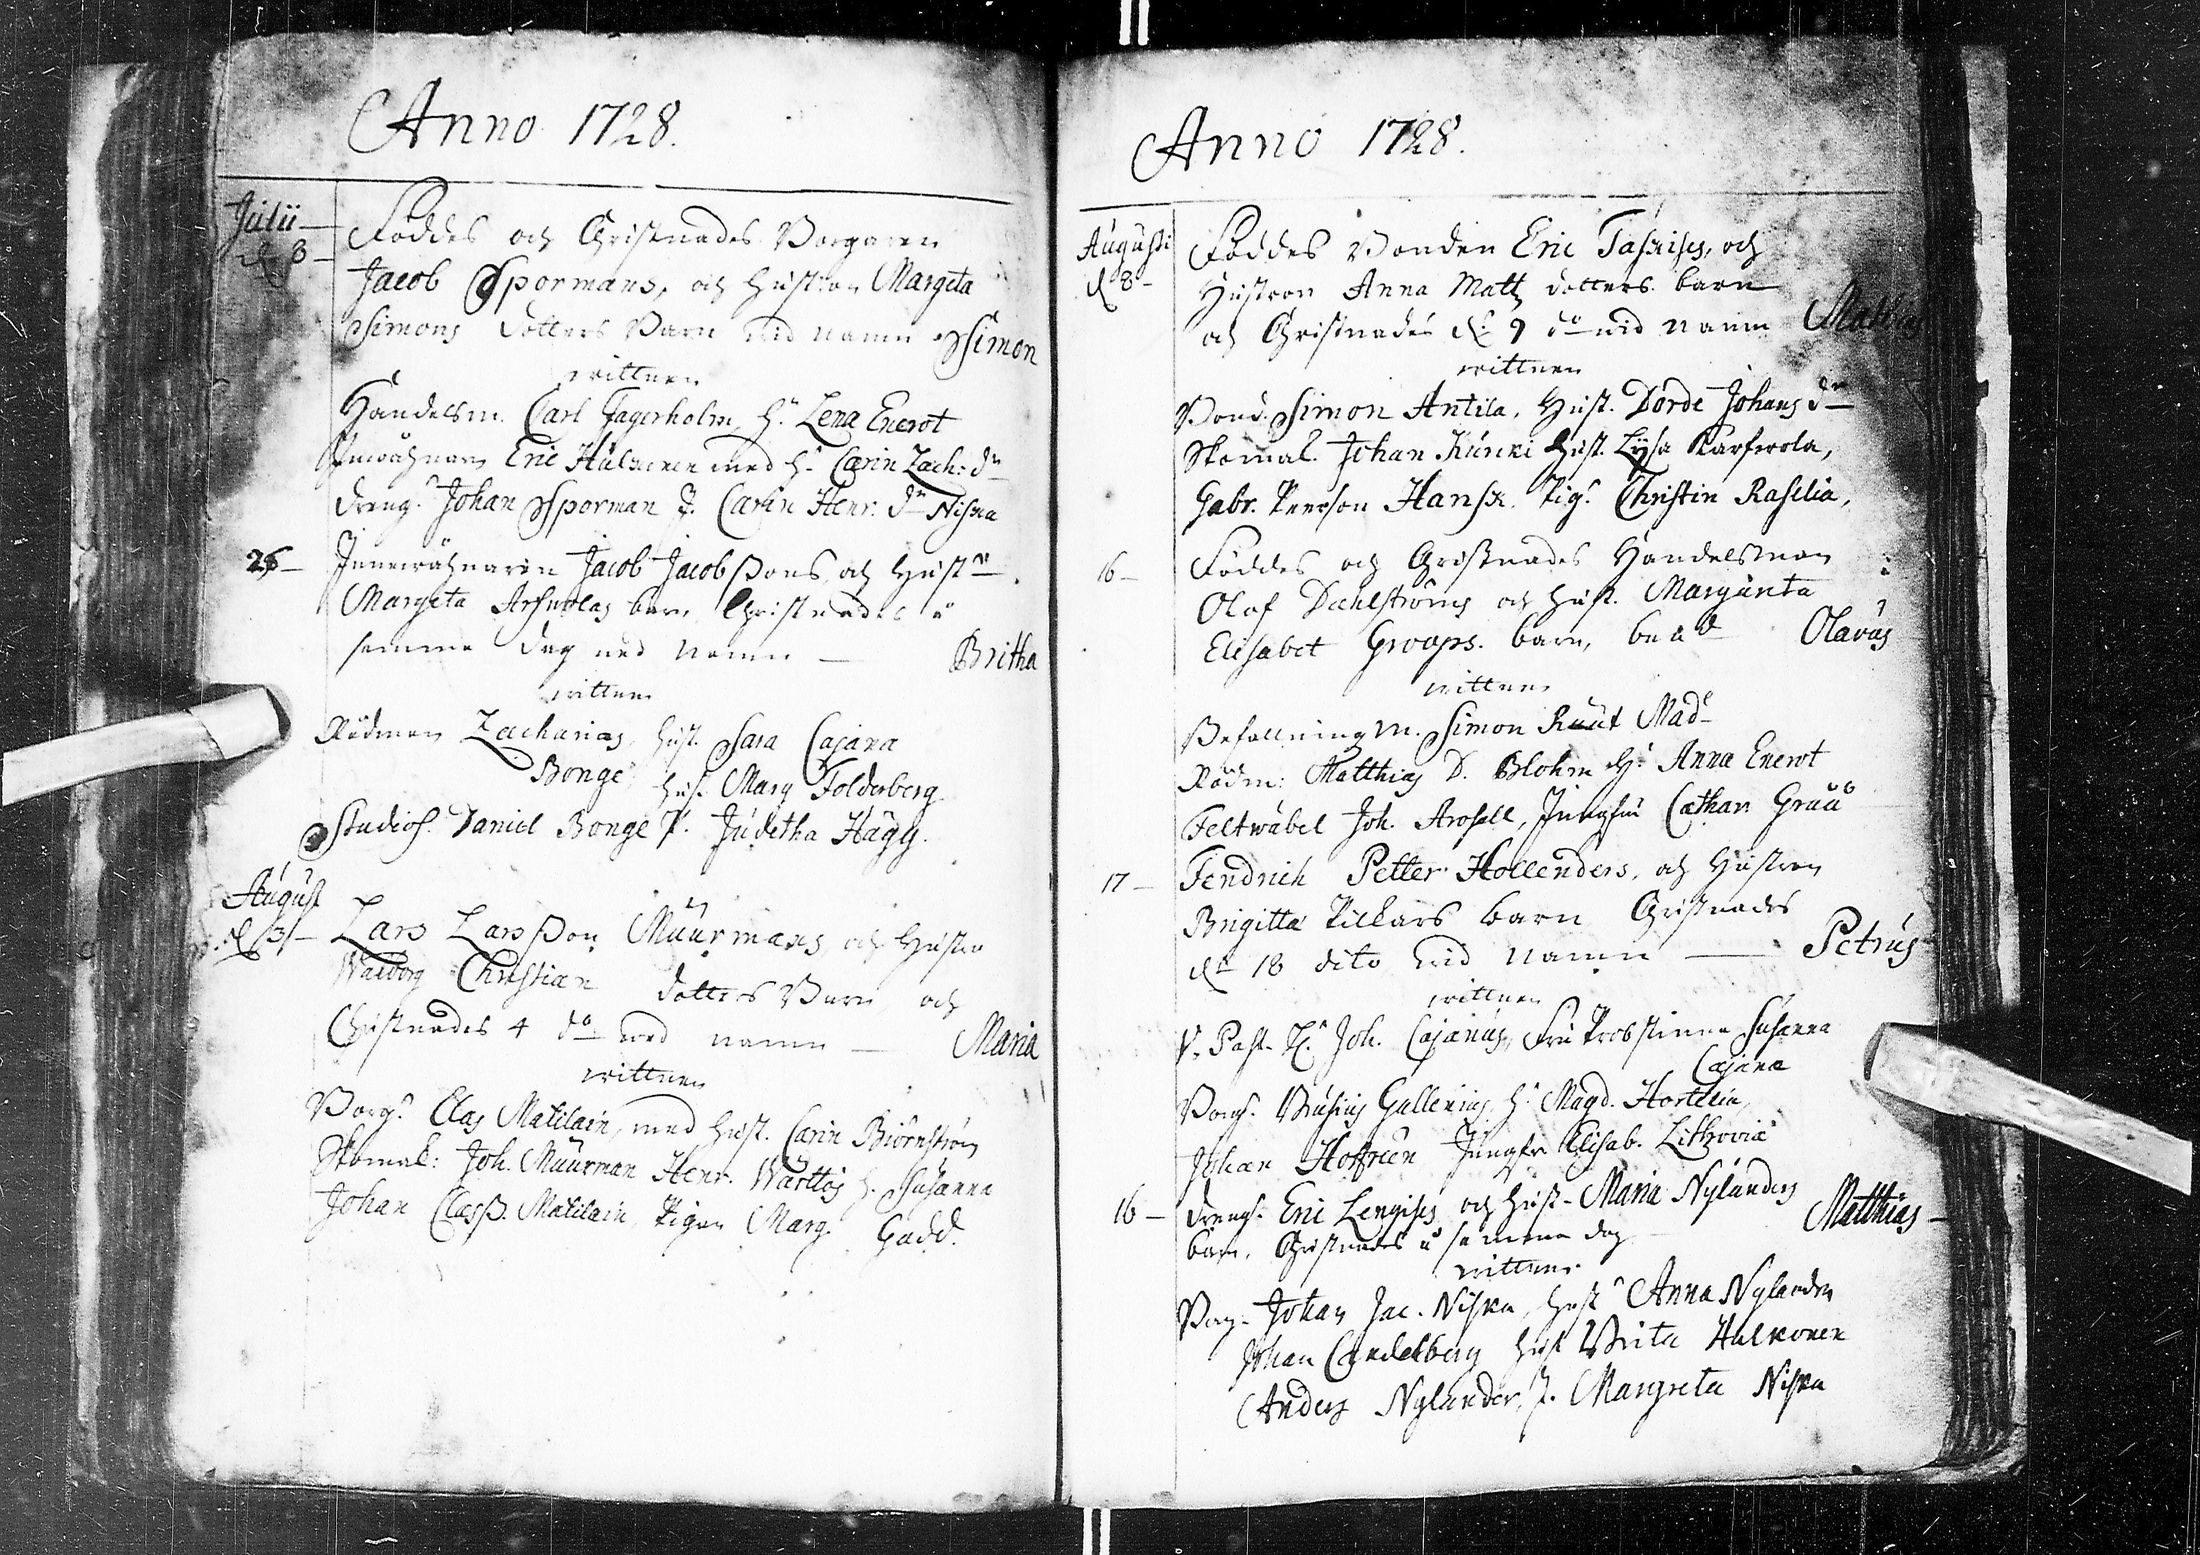 Anno 1728.
Julii
d. 8
Föddes och Christnades Borgaren
Jacob Spormans, och Hustron Margeta
Simons dotters Barn wid namn Simon
wittnen
Handelsm. Carl Fagerholm, H. Lena Enerot
Eric Hulkonen med H. Carin Zach: dr
dreng. Johan Sporman P. Carin Henr. dr Niska
26
Innewåhnaren Jacob Jacobßons och Hust:
Margeta barn, Christnades å
samma dag med namn Britha
wittnen
Rådman Zacharias Hust. Sara Cajana
Bonge Hust. Marg Folderberg
Studios. Daniel Bonge P. Juditha Hägg.
August
d. 3
Lars Larsßon Muurmans och Hustro
Walborg Christian dotters Barn och
Christnades 4 do med namn Maria
wittnen
Borg. Clas Matilain, med Hust. Carin Biörnström
Skomak: Joh. Muurman Henr. Warttig H. Susanna
Johan Clasß. Matilain, Pigan Marg. Gadd.
Anno 1728.
Augusti
d. 8
Föddes Bonden Eric och
Hustron Anna Matz dotters barn
och Christnades d. 9 do wid namn
wittnen
Bond. Simon Antila, Hust. Dorde Johans dr
Skomak. Johan Kurki Hust. Lysa
Gabr. Peerson Hansk. Pig. Christin Raselia,
16
Föddes och Christnades Handelsman
Olof Dahlströms och Hust. Margareta
Elisabet Groops. barn, Olavus
wittnen
Befallningm. Simon Ruut Mad
Rådm: Matthias D. Blohm H. Anna Enerot
Feltwäbel Joh. Arosell, Jungfru Cathar Gruu
17
Fendrich Petter Hollenders, och Hustron
Brigitta barn Christnades
dn 18 dito wid namn Petrus
wittnen
V. Past. H. Joh. Cajanus, Fru Probstinna Susanna
Cajana
Borg. Gallenius, H. Magd. Hortelia,
Johan Hoffreen Jungfr Elisab. Lithovia
16
Dreng. Eric och Hust. Maria Nylanders
barn, Christnades å samma dag Matthias
wittnen
Borg. Johan Jac. Niska, Hust Anna Nylander
Johan Candelberg Hust Brita Hulkonen
Anders Nylander, P. Margreta Niska